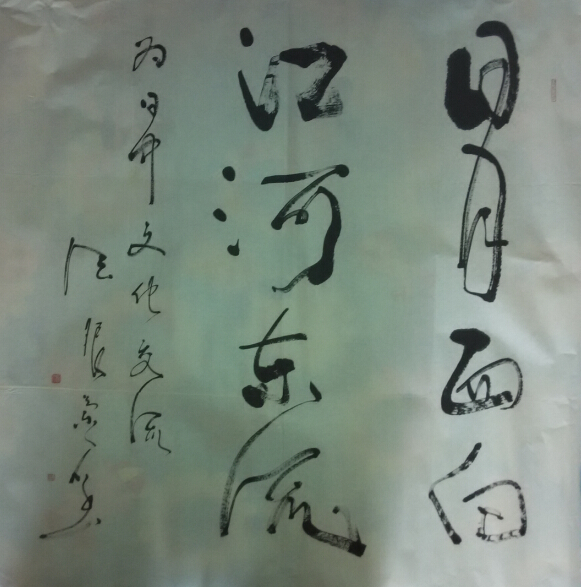 日月西向
江河东流
为日昇文化交流